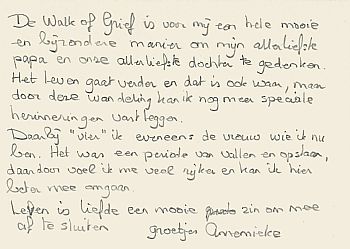 De Walk of Grief is voor mij een hele mooie
en bijzondere manier om mijn allerliefste
papa en onze allerliefste dochter te gedenken.
Het Leven gaat verder en dat is ook waar, maar
door deze wandeling kan ik nog meer speciale
herinneringen vastleggen.
Daarbij "vier" ik eveneens de vrouw wie ik nu
ben. Het was een periode van vallen en opstaan,
daardoor voel ik me veel rijker en kan ik hier
beter mee omgaan.
Leven is liefde een mooie zin om mee
af te sluiten groetjes Annemieke